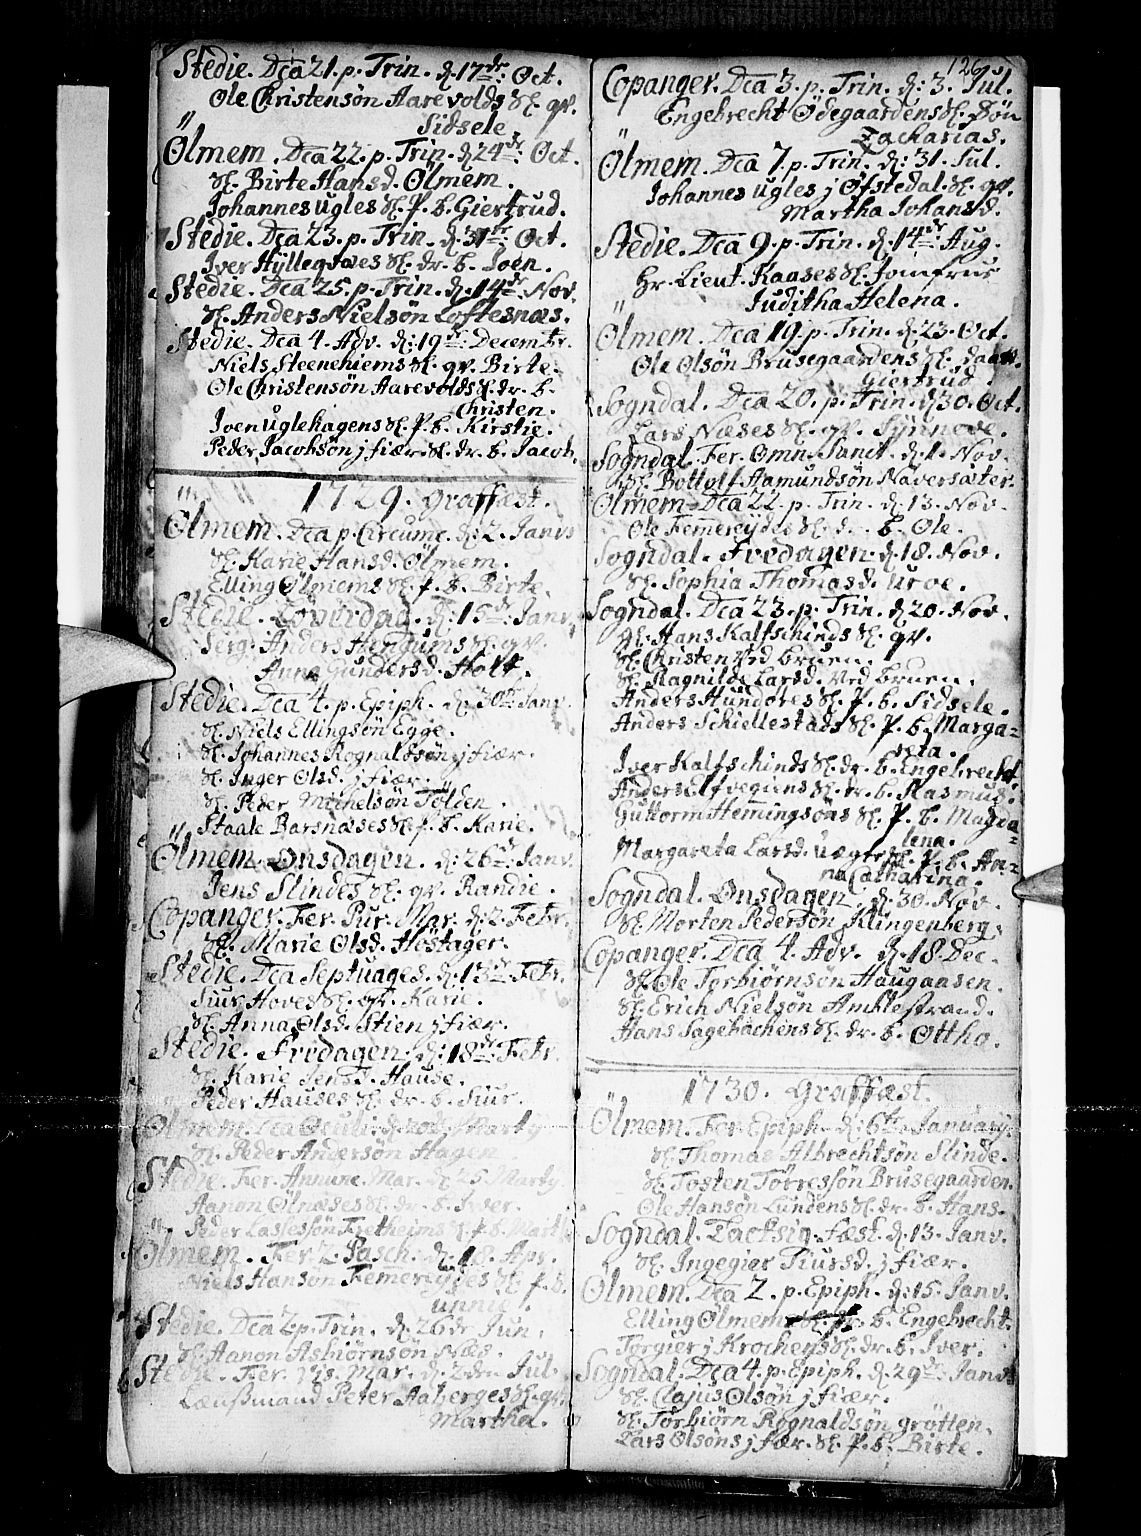 Stedie. Dca 21. p. Trin. d. 17de Oct.
Ole Christensön Aarevolds Sl. qv.
Sidsele.
Ölmem. Dca 22. p. Trin. d. 24de Oct.
Sl. Birte Hansd. Ölmem.
Johannes Ugles Sl. P. B. Giertrud.
Stedie. Dca 23. p. Trin. d. 31te Oct.
Iver Hylleqvães Sl. dr. b. Joen.
Stedie. Dca 25. p. Trin. d. 14de Nov.
Sl. Anders Nielsön Loftesnæs.
Stedie. Dca 4. Adv. d. 19de Decembr.
Niels Steenehiems Sl. qv. Birte.
Ole Christensön Aarevolds Sl. dr. b.
Christen.
Joen Uglehagens Sl. P. b. Kirstie.
Peder Jacobsön j fiær. Sl. dr. b. Jacob.
1729. Graffæst.
Ölmem. Dca p. Circumc. d. 2. Janv
Sl. Karie Hansd. Ölmem.
Elling Ölmems Sl. P. B. Birte.
Stedie. Löverdag. d. 15de Janv.
Serg. Anders Hengums Sl. qv.
Anna Gundersd. Holt.
Stedie. Dca 4. p. Epiph. d. 30te Janv.
Sl. Niels Ellingsön Egge.
Sl. Johannes Rognaldsön j fiær.
Sl. Inger Olsd. j fiær.
Sl. Peder Michelsön Tölden.
Staale Barsnæses Sl. P. B. Karie.
Ölmem. Onsdagen. d. 26de Janv.
Jens Slindes Sl. qv. Randie.
Copanger. Fer. Pur. Mar. d. 2. Febr.
Sl. Marie Olsd. Höstager.
Stedie. Dca Septuages. d. 13de Febr.
Siur Hoves Sl. qv. Karie.
Sl. Anna Olsd. Stien j fiær.
Stedie. Fredagen. d. 18de Febr.
Sl. Karie Jensd. Hause.
Peder Hauses Sl. dr. b. Siur.
Ölmem. Dca Oculi. d. 20de Marty
Sl. Peder Andersön Hagen
Stedie. Fer. Annunc. Mar. d. 25 Marty.
Aanon Ölnæses Sl. dr. b. Iver.
Peder Lassessön Fietheims Sl. P. b.
Ölmem. Fer. 2. Pasch. d. 18. Apr.
Niels Hansön Femereydes Sl. P. B.
Unnie.
Stedie. Dca 2 p. Trin. d. 26de Jun.
Sl. Aanon Asbiörnsön Næs.
Stedie. Fer. Vis. Mar. d. 2den Jul.
Lænßmand Peter Aaberges Sl. qv.
Martha.
126
Copanger. Dca 3. p. Trin. d. 3. Jul.
Engebrecht Ödegaardens Sl. Sön
Zacharias.
Ölmem. Dca 7. p. Trin. d. 31. Jul.
Johannes Ugles j Öfstedal. Sl. qv.
Martha Johansd.
Stedie. Dca 9. p. Trin. d. 14de Aug.
Hr. Lieut. Kaases Sl. Jomfrue
Juditha Helena.
Ölmem. Dca 19. p. Trin. d. 23. Oct.
Ole Olsön Brusegaardens Sl. daatt.
Giertrud.
Sogndal. Dca 20. p. Trin. d. 30. Oct.
Lars Næses Sl. qv. Synnove.
Sogndal. Fer. Omn. Sanct. d. 1. Nov.
Sl. Bottolf Aamundsön Naversæter.
Ölmem. Dca 22. p. Trin. d. 13. Nov.
Ole Femereydes Sl. d. b. Ole.
Sogndal. Fredagen. d. 18. Nov.
Sl. Sophia Thomasd. Urve.
Sogndal. Dca 23. p. Trin. d. 20. Nov.
Hans Kalfschinds Sl. qv.
Sl. Christen Ved bruen.
Sl. Ragnilde Larsd. Ved bruen.
Anders Hundores Sl. P. b. Sidsele.
Anders Schiellestads Sl. P. b. Marga-
reta.
Iver Kalfschinds Sl. dr. b. Engebrecht
Anders Elfvegiens Sl. dr. b. Rasmus.
Guttorm Hemmingsöns Sl. P. b. Magda-
lena.
Margareta Larsd. Sl. P. b. An-
na Catharina.
Sogndal. Onsdagen. d. 30. Nov.
Sl. Morten Pedersön Klingenberg.
Copanger. Dca 4. Adv. d. 18. Dec.
Sl. Ole Torbiörnsön Haugaasen.
Sl. Erich Nielsön Amblestrand.
Hans Sagebachens Sl. dr. b. Ottho.
1730. Graffæst.
Ölmem. Fer. Epiph. d. 6te Januarij.
Sl. Thomas Albrechtsön Slinde.
Sl. Tosten Törressön Brusegaarden.
Ole Hansön Lundens Sl. dr. b. Hans.
Sogndal. Tacksig. fæst. d. 13. Janv.
Sl. Ingegier Siursd. j fiær.
Ölmem. Dca 2. p. Epiph. d. 15. Janv.
Elling Ölmems b. Engebrecht.
Torgier j Krochens Sl. dr. b. Iver.
Sogndal. Dca 4. p. Epiph. d. 29de Janv
Sl. Clajus Olsön j fiær.
Sl. Torbiörn Rognaldsön grötten.
Lars Olsöns j fiær. Sl. P. b. Birte.